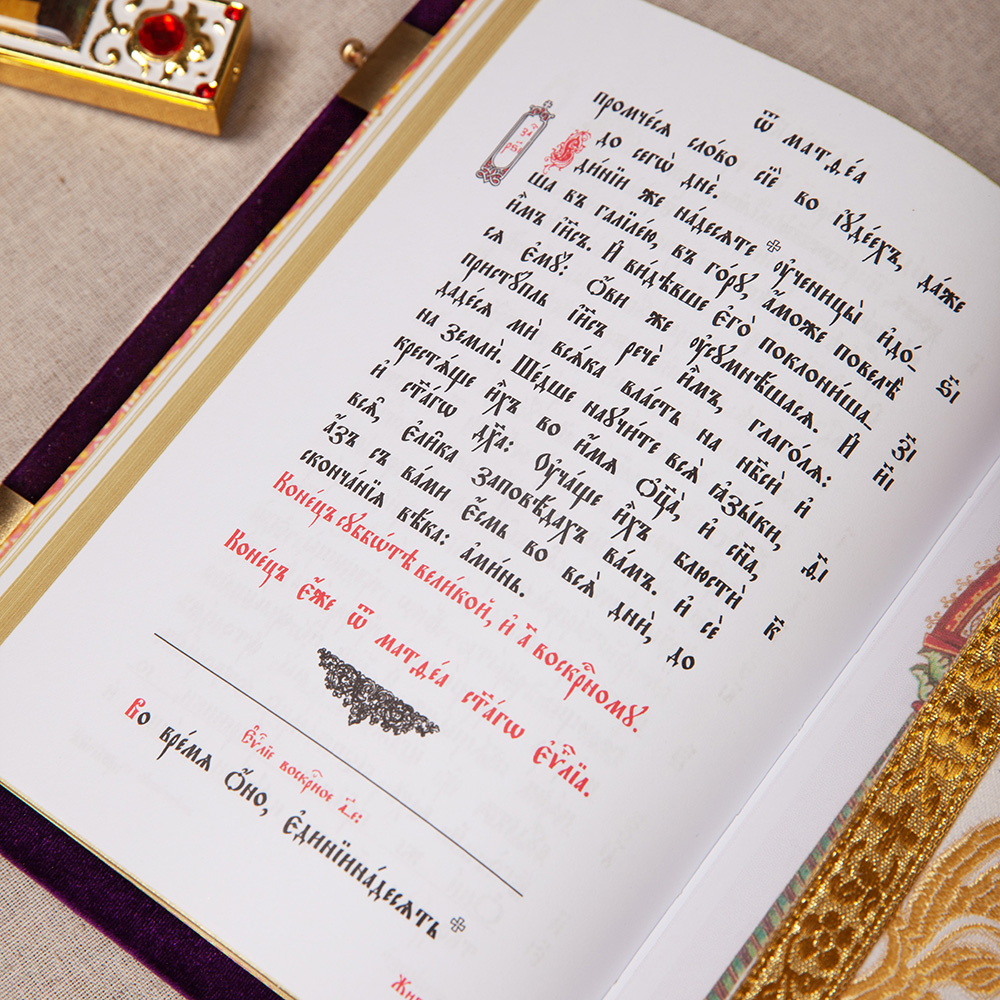 Ѿ матѳе́а
промче́сѧ сло́во сїѐ во і҆ꙋде́ехъ, да́же
до сегѡ̀ днѐ.
Є҆ди́нїи же на́десѧте ᲂу҆ченицы̀ и҆до́_
ша въ галїле́ю, въ го́рꙋ, а҆́може повелѣ̀
и҆̀мъ і҆и҃съ. И҆ ви́дѣвше є҆го̀ поклони́ша_
сѧ є҆мꙋ̀: Ѻ҆́ви же ᲂу҆сꙋмнѣ́шасѧ. И҆
пристꙋ́пль і҆и҃съ речѐ и҆̀мъ, глаго́лѧ:
даде́сѧ мѝ всѧ́ка вла́сть на нб҃сѝ и҆
на землѝ. Ше́дше наꙋчи́те всѧ̑ ꙗ҆зы́ки,
крестѧ́ще и҆̀хъ во и҆́мѧ ѻ҆ц҃а̀, и҆ сн҃а,
и҆ ст҃а́гѡ дх҃а: Оу҆ча́ще и҆̀хъ блюстѝ
всѧ̑, є҆ли̑ка заповѣ́дахъ ва́мъ. и҆ сѐ
а҆́зъ съ ва́ми є҆́смь во всѧ̑ дни̑, до
сконча́нїѧ вѣ́ка: а҆ми́нь.
Коне́цъ сꙋббѡ́тѣ вели́кой, и҆ а҃ воскрⷭ҇номꙋ.
Коне́цъ є҆́же ѿ матѳе́а ст҃а́гѡ є҆ѵⷢ҇лїа.
є҆ѵⷢ҇лїе воскрⷭ҇ное а҃_е:
Во вре́мѧ ѻ҆́но, є҆ди́нїинна́десѧть
ѕ҃і
з҃і
и҃і
ѳ҃і
к҃